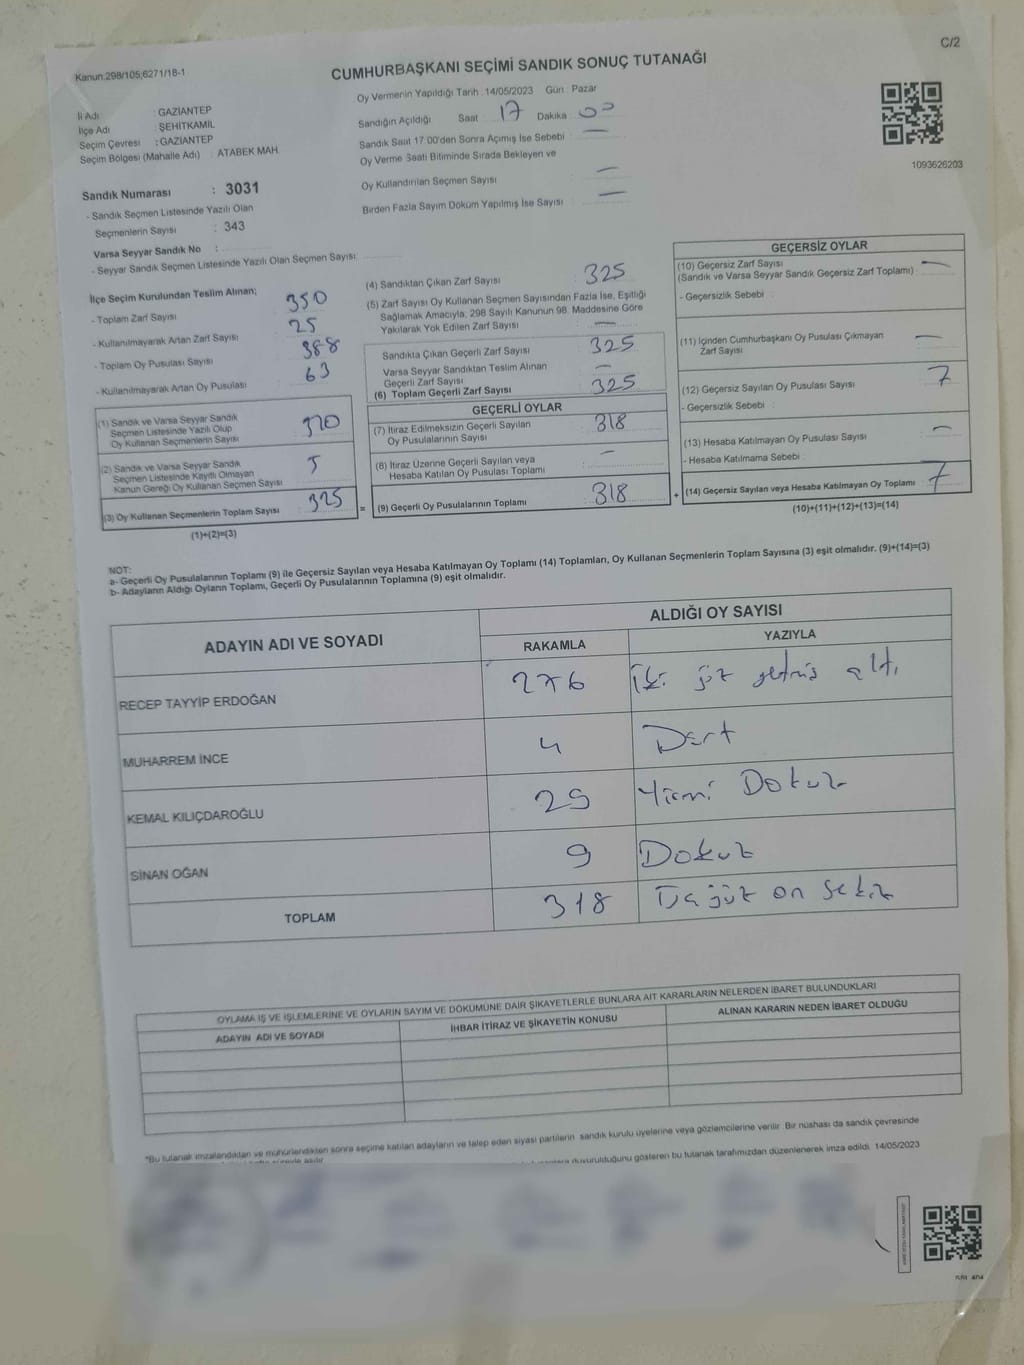 C/2
Kanun:298/105;6271/18-1
CUMHURBAŞKANI SEÇİMİ SANDIK SONUÇ TUTANAĞI
Oy Vermenin Yapıldığı Tarih :14/05/2023 Gün : Pazar
İl Adı : GAZİANTEP
İlçe Adı : ŞEHİTKAMİL
Seçim Çevresi : GAZİANTEP
Seçim Bölgesi (Mahalle Adı) : ATABEK MAH.
Sandığın Açıldığı Saat : 17 Dakika : 00
Sandık Saat 17:00'den Sonra Açımış İse Sebebi : —
Oy Verme Saati Bitiminde Sırada Bekleyen ve
Oy Kullandırılan Seçmen Sayısı : —
Birden Fazla Sayım Döküm Yapılmış İse Sayısı : —
1093626203
Sandık Numarası : 3031
- Sandık Seçmen Listesinde Yazılı Olan
Seçmenlerin Sayısı : 343
Varsa Seyyar Sandık No :
- Seyyar Sandık Seçmen Listesinde Yazılı Olan Seçmen Sayısı:
İlçe Seçim Kurulundan Teslim Alınan;
- Toplam Zarf Sayısı 350
- Kullanılmayarak Artan Zarf Sayısı 25
- Toplam Oy Pusulası Sayısı 388
- Kullanılmayarak Artan Oy Pusulası 63
(1) Sandık ve Varsa Seyyar Sandık
Seçmen Listesinde Yazılı Olup
Oy Kullanan Seçmenlerin Sayısı 320
(2) Sandık ve Varsa Seyyar Sandık
Seçmen Listesinde Kayıtlı Olmayan
Kanun Gereği Oy Kullanan Seçmen Sayısı 5
(3) Oy Kullanan Seçmenlerin Toplam Sayısı 325
(1)+(2)=(3)
(4) Sandıktan Çıkan Zarf Sayısı 325
(5) Zarf Sayısı Oy Kullanan Seçmen Sayısından Fazla İse, Eşitliği
Sağlamak Amacıyla, 298 Sayılı Kanunun 98. Maddesine Göre
Yakılarak Yok Edilen Zarf Sayısı —
Sandıkta Çıkan Geçerli Zarf Sayısı 325
Varsa Seyyar Sandıktan Teslim Alınan
Geçerli Zarf Sayısı —
(6) Toplam Geçerli Zarf Sayısı 325
=
GEÇERLİ OYLAR
(7) İtiraz Edilmeksizin Geçerli Sayılan
Oy Pusulalarının Sayısı 318
(8) İtiraz Üzerine Geçerli Sayılan veya
Hesaba Katılan Oy Pusulası Toplamı —
(9) Geçerli Oy Pusulalarının Toplamı 318
+
GEÇERSİZ OYLAR
(10) Geçersiz Zarf Sayısı
(Sandık ve Varsa Seyyar Sandık Geçersiz Zarf Toplamı) —
- Geçersizlik Sebebi :
(11) İçinden Cumhurbaşkanı Oy Pusulası Çıkmayan
Zarf Sayısı —
(12) Geçersiz Sayılan Oy Pusulası Sayısı 7
- Geçersizlik Sebebi :
(13) Hesaba Katılmayan Oy Pusulası Sayısı —
- Hesaba Katılmama Sebebi :
(14) Geçersiz Sayılan veya Hesaba Katılmayan Oy Toplamı 7
(10)+(11)+(12)+(13)=(14)
NOT:
a- Geçerli Oy Pusulalarının Toplamı (9) ile Geçersiz Sayılan veya Hesaba Katılmayan Oy Toplamı (14) Toplamları, Oy Kullanan Seçmenlerin Toplam Sayısına (3) eşit olmalıdır. (9)+(14)=(3)
b- Adayların Aldığı Oyların Toplamı, Geçerli Oy Pusulalarının Toplamına (9) eşit olmalıdır.
ADAYIN ADI VE SOYADI
ALDIĞI OY SAYISI
RAKAMLA YAZIYLA
RECEP TAYYİP ERDOĞAN 276 iki yüz yetmiş altı
MUHARREM İNCE 4 Dört
KEMAL KILIÇDAROĞLU 29 Yirmi Dokuz
SİNAN OĞAN 9 Dokuz
TOPLAM 318 Üçyüz on sekiz
OYLAMA İŞ VE İŞLEMLERİNE VE OYLARIN SAYIM VE DÖKÜMÜNE DAİR ŞİKAYETLERLE BUNLARA AİT KARARLARIN NELERDEN İBARET BULUNDUKLARI
ADAYIN ADI VE SOYADI İHBAR İTİRAZ VE ŞİKAYETİN KONUSU ALINAN KARARIN NEDEN İBARET OLDUĞU
*Bu tutanak imzalandıktan ve mühürlendikten sonra seçime katılan adayların ve talep eden siyasi partilerin sandık kurulu üyelerine veya gözlemcilerine verilir. Bir nüshası da sandık çevresinde
duyurulduğunu gösteren bu tutanak tarafımızdan düzenlenerek imza edildi. 14/05/2023